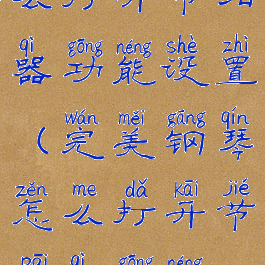 qì gōng néng shè zhì
器功能设置
wán měi gāng qín
（完美钢琴
zěn me dǎ kāi jié
怎么打开节
pāi qì gōng néng